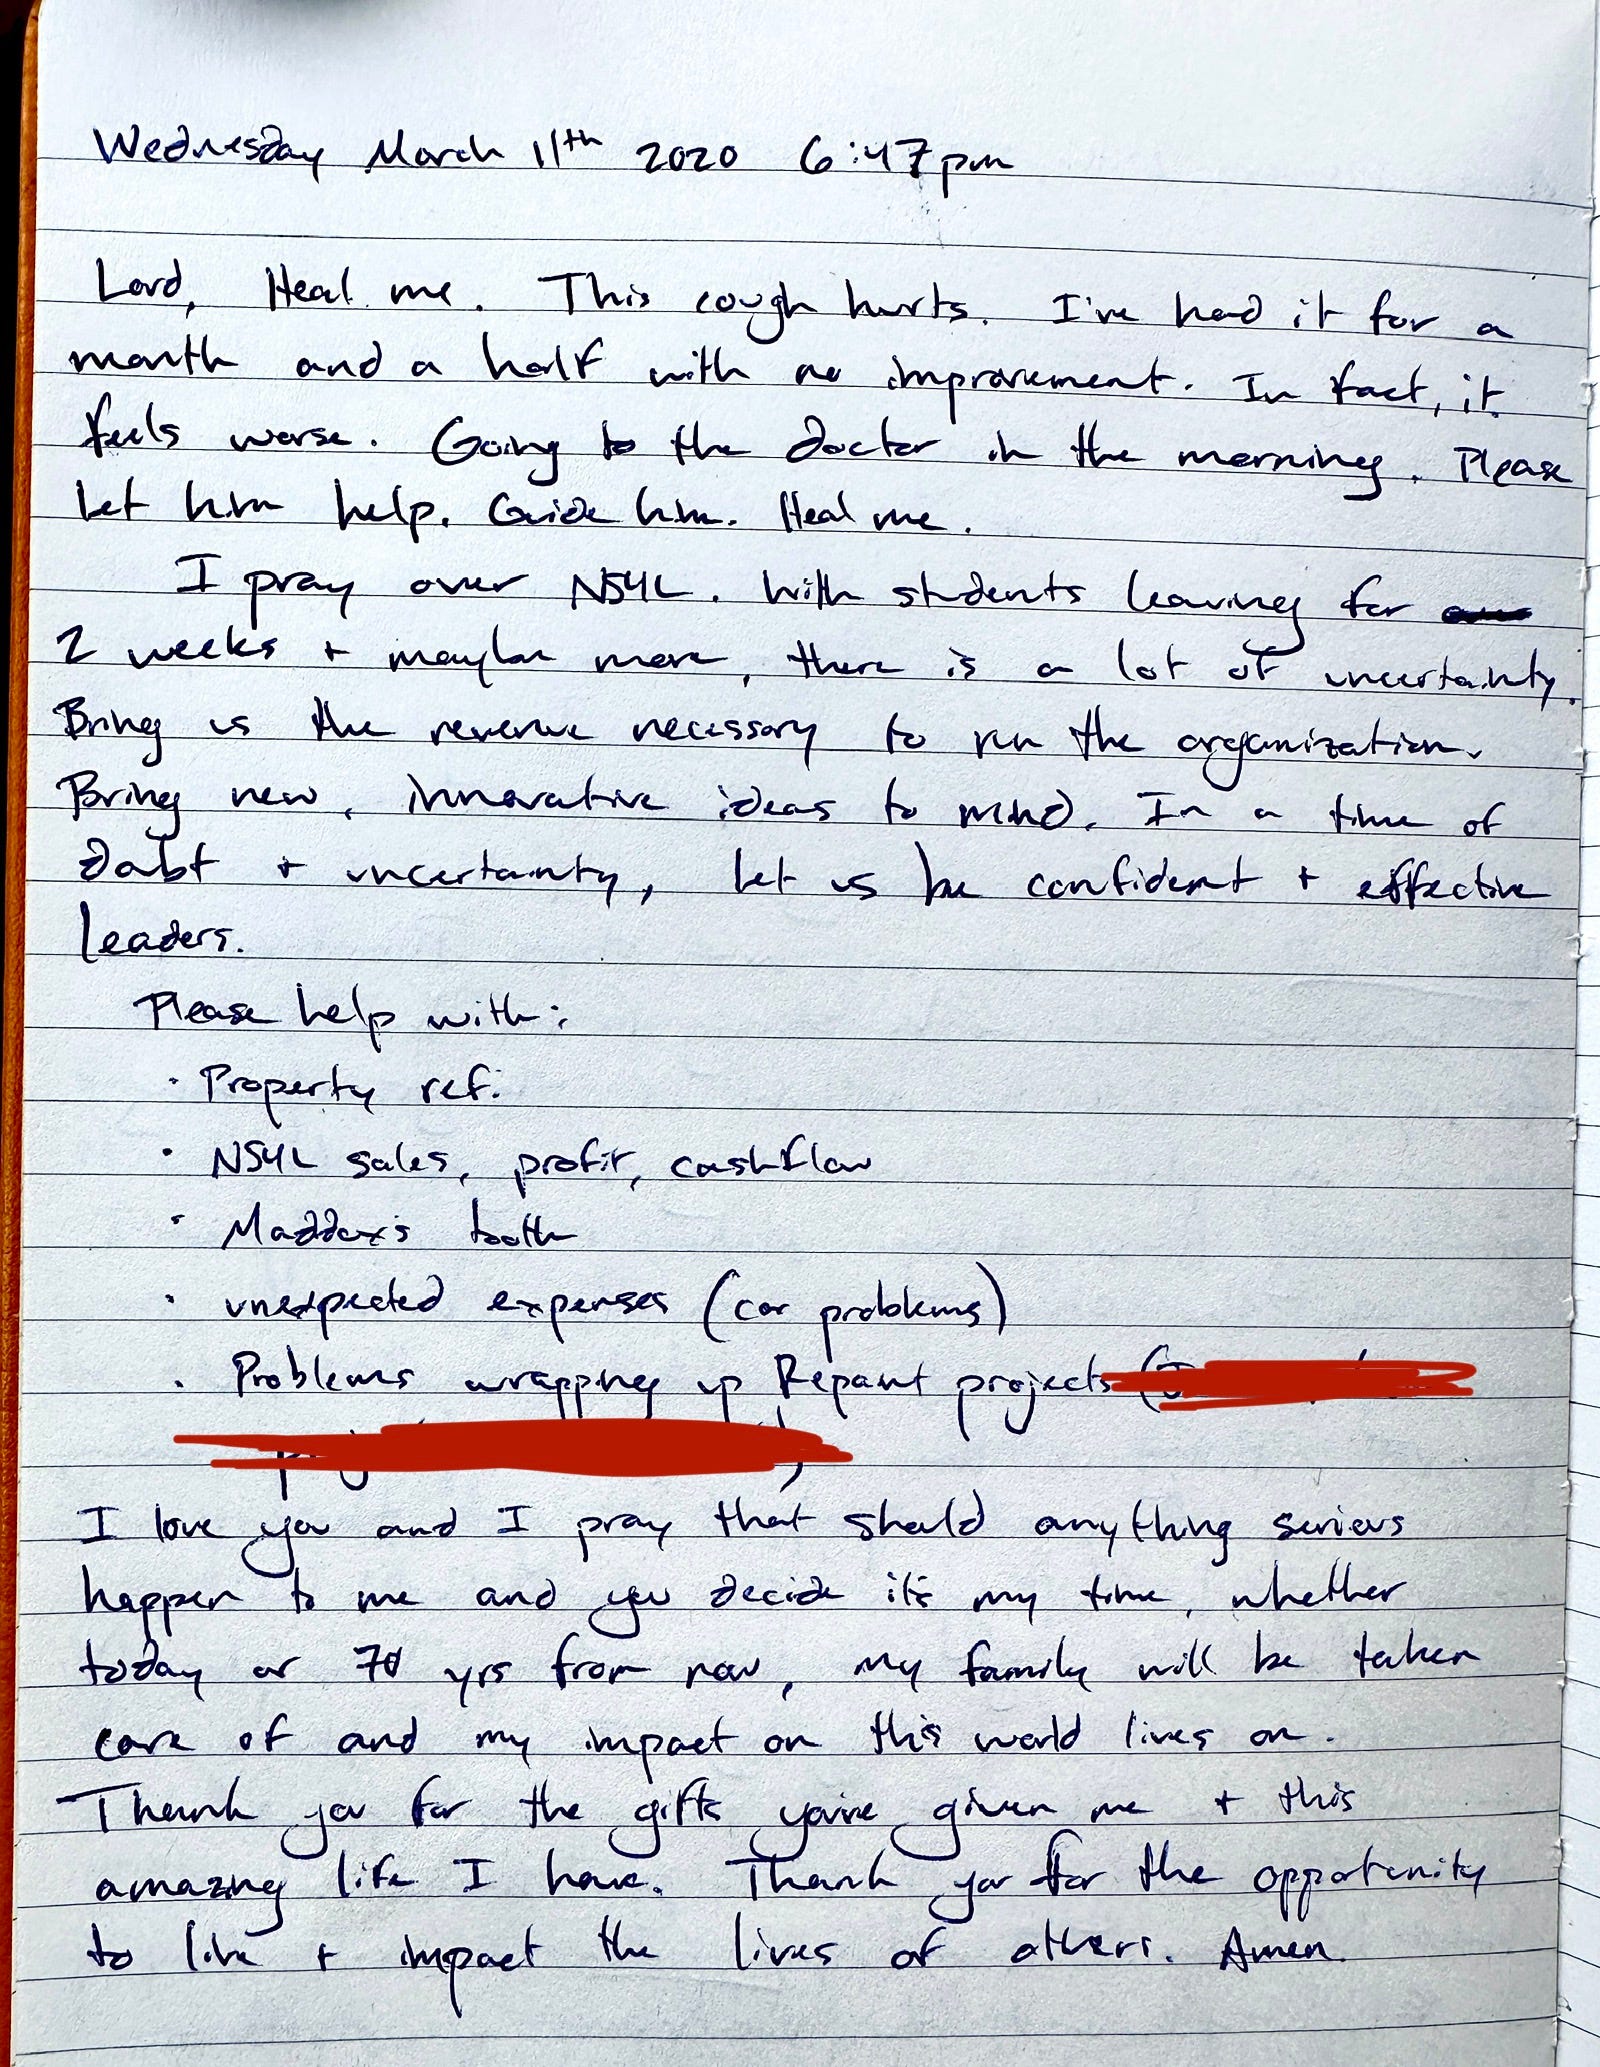 Wednesday March 11th 2020 6:47pm
Lord, Heal me. This cough hurts. I've had it for a
month and a half with no improvement. In fact, it
feels worse. Going to the doctor in the morning. Please
let him help. Guide him. Heal me.
I pray over N54L. With students leaving for
2 weeks + maybe more, there is a lot of uncertainty.
Bring us the revenue necessary to run the organization.
Bring new, innovative ideas to mind. In a time of
doubt + uncertainty, let us be confident + effective
leaders.
Please help with:
· Property refi
· N54L sales, profit, cashflow
· Maddox's tooth
· unexpected expenses (car problems)
· Problems wrapping up Repaint projects
I love you and I pray that should anything serious
happen to me and you decide it's my time, whether
today or 70 yrs from now, my family will be taken
care of and my impact on this world lives on.
Thank you for the gifts you've given me + this
amazing life I have. Thank you for the opportunity
to live + impact the lives of others. Amen.